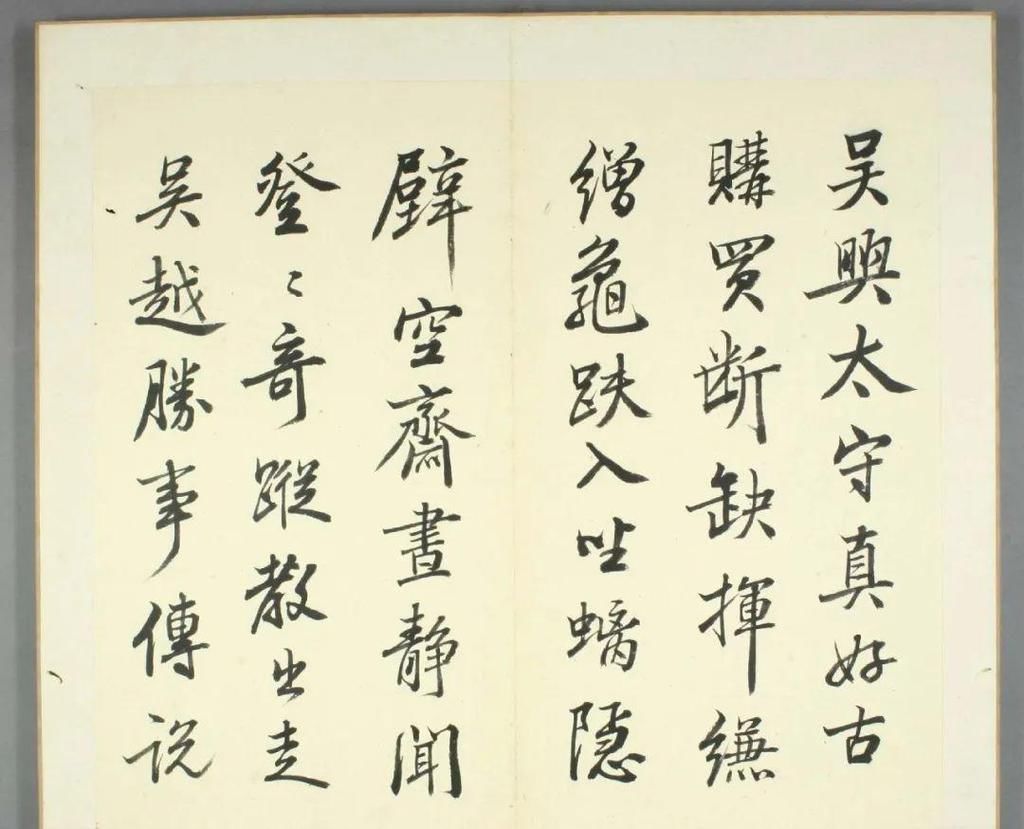 吳興太守真好古
購買断缺揮縑
繒龜趺入坐螭隱
壁空齋晝静聞
登〻奇蹤散出走
吳越勝事傳説